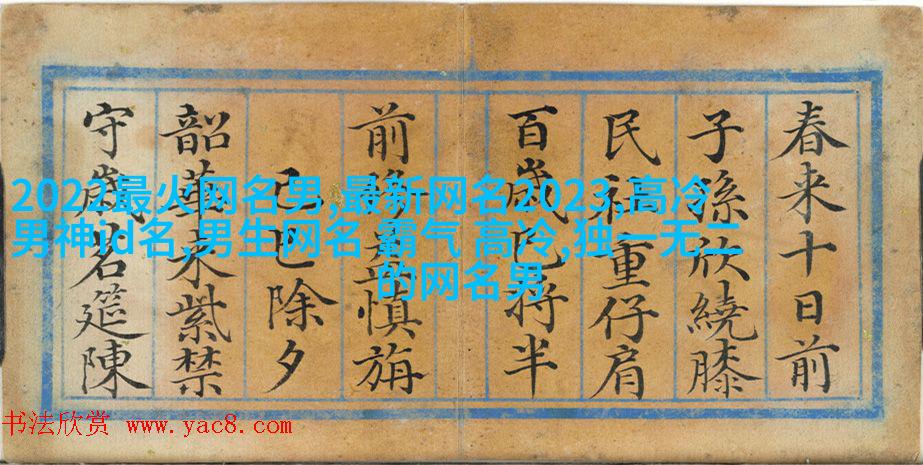 春来十日前
子孫欣繞膝
民社重仔肩
百歲已将半
前益慎旃
己巳除夕
韶華来紫禁
守歲茗筵陳
2022最火网名男,最新网名2023,高冷
男神id名,男生网名 霸气 高冷,独一无二
的网名男
书法欣赏 www.yac8.com